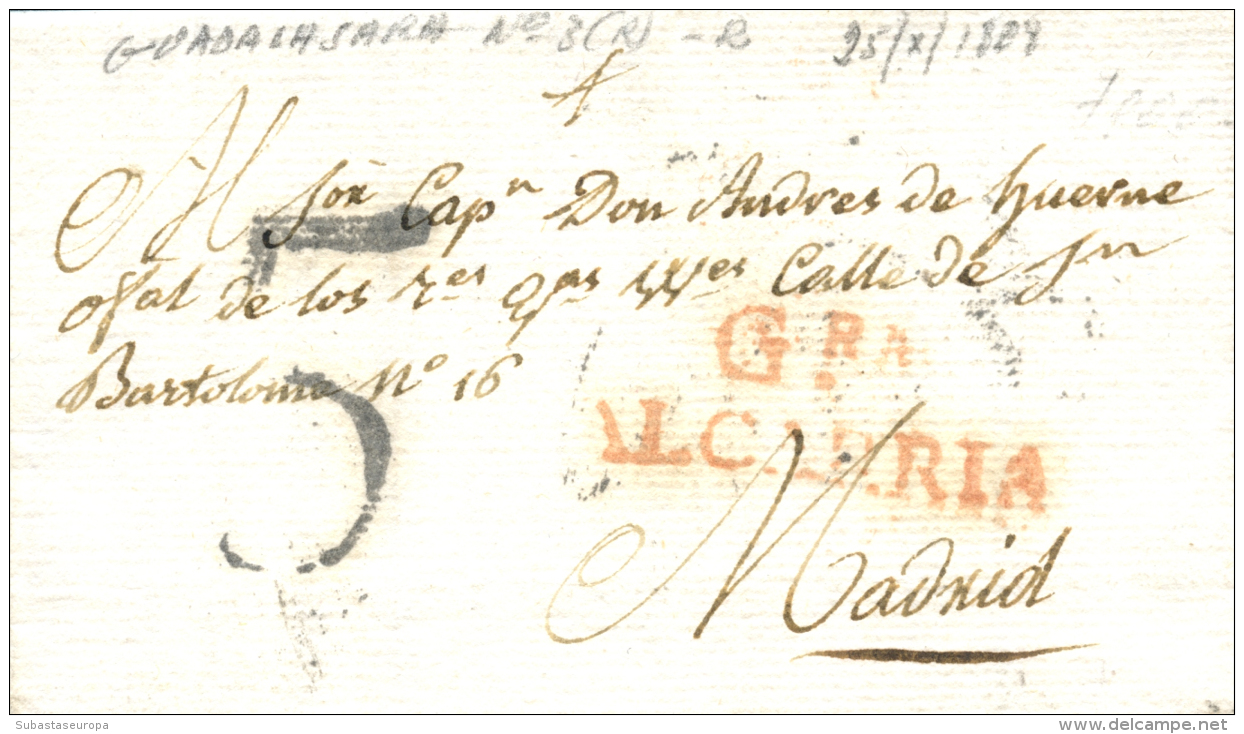 GUADALAJARA Nº 8 (R) - R 25/X/1829
Al Sor Capn Don Andres de Huerne
ofal de los Calle de Sn
Bartolome Nº 16
5
G.RA
ALCARRIA
Madrid
Subastaseuropa
www.delcampe.net